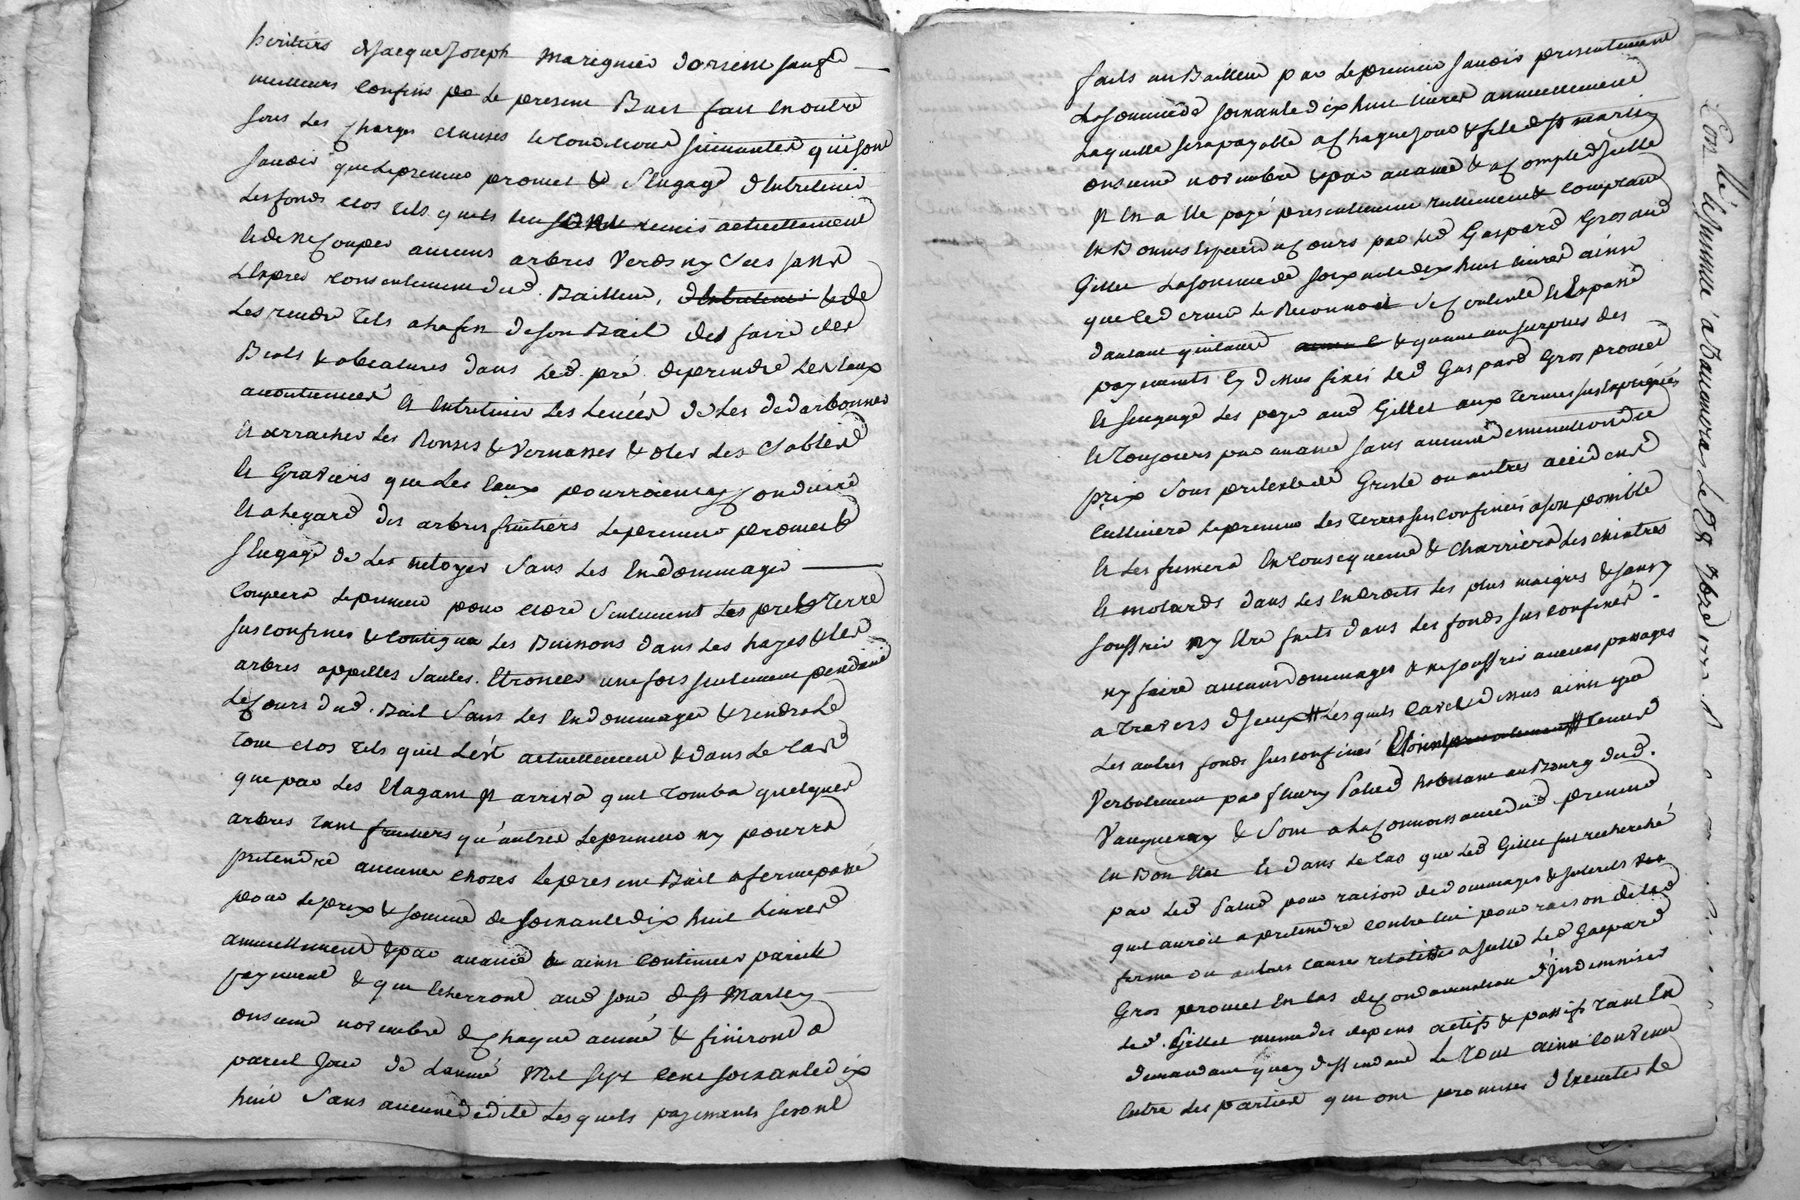 heritiers de Jacque Joseph Marignier dorient sauf
meilleurs confins le present Bail fait en outre
sous les charges clauses et conditions suivantes qui sont
savoir que le preneur promet & s'engage d'Entretenir
les fonds clos tels quels luy sont remis actuellement
et de ne couper aucuns arbres verds ny secs sans
l'Expres consentement dud. Bailleur, d'Entretenir & de
les rendre tels a la fin de son Bail de faire les
Biols & abeatures dans led. pré de prendre les Eaux
accoutumées et entretenir les levées de les
et arracher les Ronses & vernasses & oter les Sables
et Graviers que les Eaux pourroient y conduire
et a legard des arbres fruitiers le preneur promet &
s'Engage de les netoyer sans les Endommager
Coupera le preneur pour clore seulement les prés & terre
susconfinés & contigus les Buissons dans les hayes & les
arbres appellés saules Etroncer une fois seulement pendant
le cours dud. Bail sans les Endommager & rendra le
tout clos tels quil l'est actuellement & dans le cas
que par les Elagant il arriva quil tomba quelques
arbres tant fruitiers qu'autres le preneur ny pourra
pretendre aucunes choses le present Bail a ferme passé
pour le prix & somme de soixante dix huit Livres
annuellement & par avance & ainsi continuer pareils
payement & que écherront aud jour de St Martin
onsieme novembre de chaque année & finiront a
pareil jour de l'année Mil sept cent soixante dix
huit sans aucune dedite lesquels payements seront
faits au Bailleur par le preneur savoir presentement
la somme de soixante dix huit livres annuellement
laquelle sera payable a chaque jour & fete de St martin
onsieme novembre & par avance & a compte d'Icelle
Il en a Eté payé presentement reellement & comptant
en Bonnes Especes ayant cours par led Gaspard Gros aud
Gillet la somme de soixante dix huit livres ainsi
que led Gillet le Reconnoit s'en contente et En passe
d'autant quittance & quant au surplus des
payements cy dessus fixés led Gaspard Gros promet
et s'engage les payer aud Gillet aux termes susexpliqués
et toujours par avance sans aucune diminution du
prix sous pretexte de Grele ou autres accidents
Cultivera le preneur les terres susconfinées a son possible
et les fumera En consequence & charriera les chintres
et molards dans les Endroits les plus maigres & sans y
souffrir ny Etre faits dans les fonds susconfinés
ny faire aucuns dommages & ne souffrir aucuns passages
a travers d'Iceux lesquels cy dessus ainsi que
les autres fonds susconfinés tenus
verbalement par fleury Palud habitant au Bourg dud.
Vaugneray & sont a la Connoissance dud preneur
en Bon Etat Et dans le cas que led Gillet fut recherché
par led Palud pour raison de dommages & interets
quil auroit a pretendre contre lui pour raison de lad
ferme ou autres causes relatives a Icelle led Gaspard
Gros promet En cas de condamnation d'Indemniser
led. Gillet meme des depens actifs & passifs tant En
demandant quen deffendant le tout ainsi convenu
Entre les parties qui ont promises d'Executer le